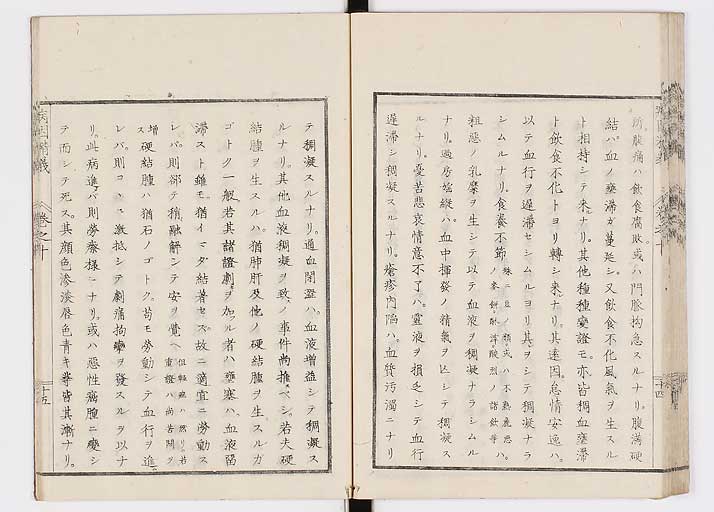 所腹痛ハ飲食腐敗或ハ門脈拘急スルナリ。腹満硬
結ハ血ノ壅滞ガ蔓延シ。又飲食不化風氣ヲ生スル
ト相持シテ来ナリ。其他種種變證モ。亦皆稠血壅滞
ト飲食不化トヨリ轉シ来ナリ。其遠因。怠惰安逸ハ。
以テ血行ヲ遅滞セシムルヨリ其ヲシテ稠凝ナラ
シムルナリ。食養不節
粗惡ノ乳糜ヲ生シテ以テ血液ヲ稠凝ナラシムル
ナリ。過房婬縱ハ。血中揮發ノ精氣ヲ亡シテ稠凝ス
ルナリ。憂苦悲哀情意不了ハ。靈液ヲ損乏シテ血行
遅滞シ稠凝スルナリ。瘡疹内陥ハ。血質汚濁ニナリ
十四
テ稠凝スルナリ。過血閉塞ハ。血液増益シテ稠凝ス
ルナリ。其他血液稠凝ヲ致ノ事件尚推ベシ。若夫硬
結腫ヲ生スルハ。猶肺肝及他ノ硬結腫ヲ生スルガ
ゴトク一般。若其諸證劇ヲ加ル者ハ。壅塞ハ。血液留
滞スト雖モ。猶イマダ結著セズ。故ニ適宜ニ勞動ス
レバ。則却テ稍融解シテ安ヲ覺ヘ
増 硬結腫ハ猶石ノゴトク。苟モ勞動シテ血行ヲ進
レバ。則コヽニ激抵シテ劇痛拘攣ヲ發スルヲ以ナ
リ。此病進バ則勞瘵様ニナリ。或ハ惡性癌腫ニ變シ
テ而シテ死ス。其顔色滲淡唇色青キ等皆其漸ナリ。
病因精義
卷之十
十五